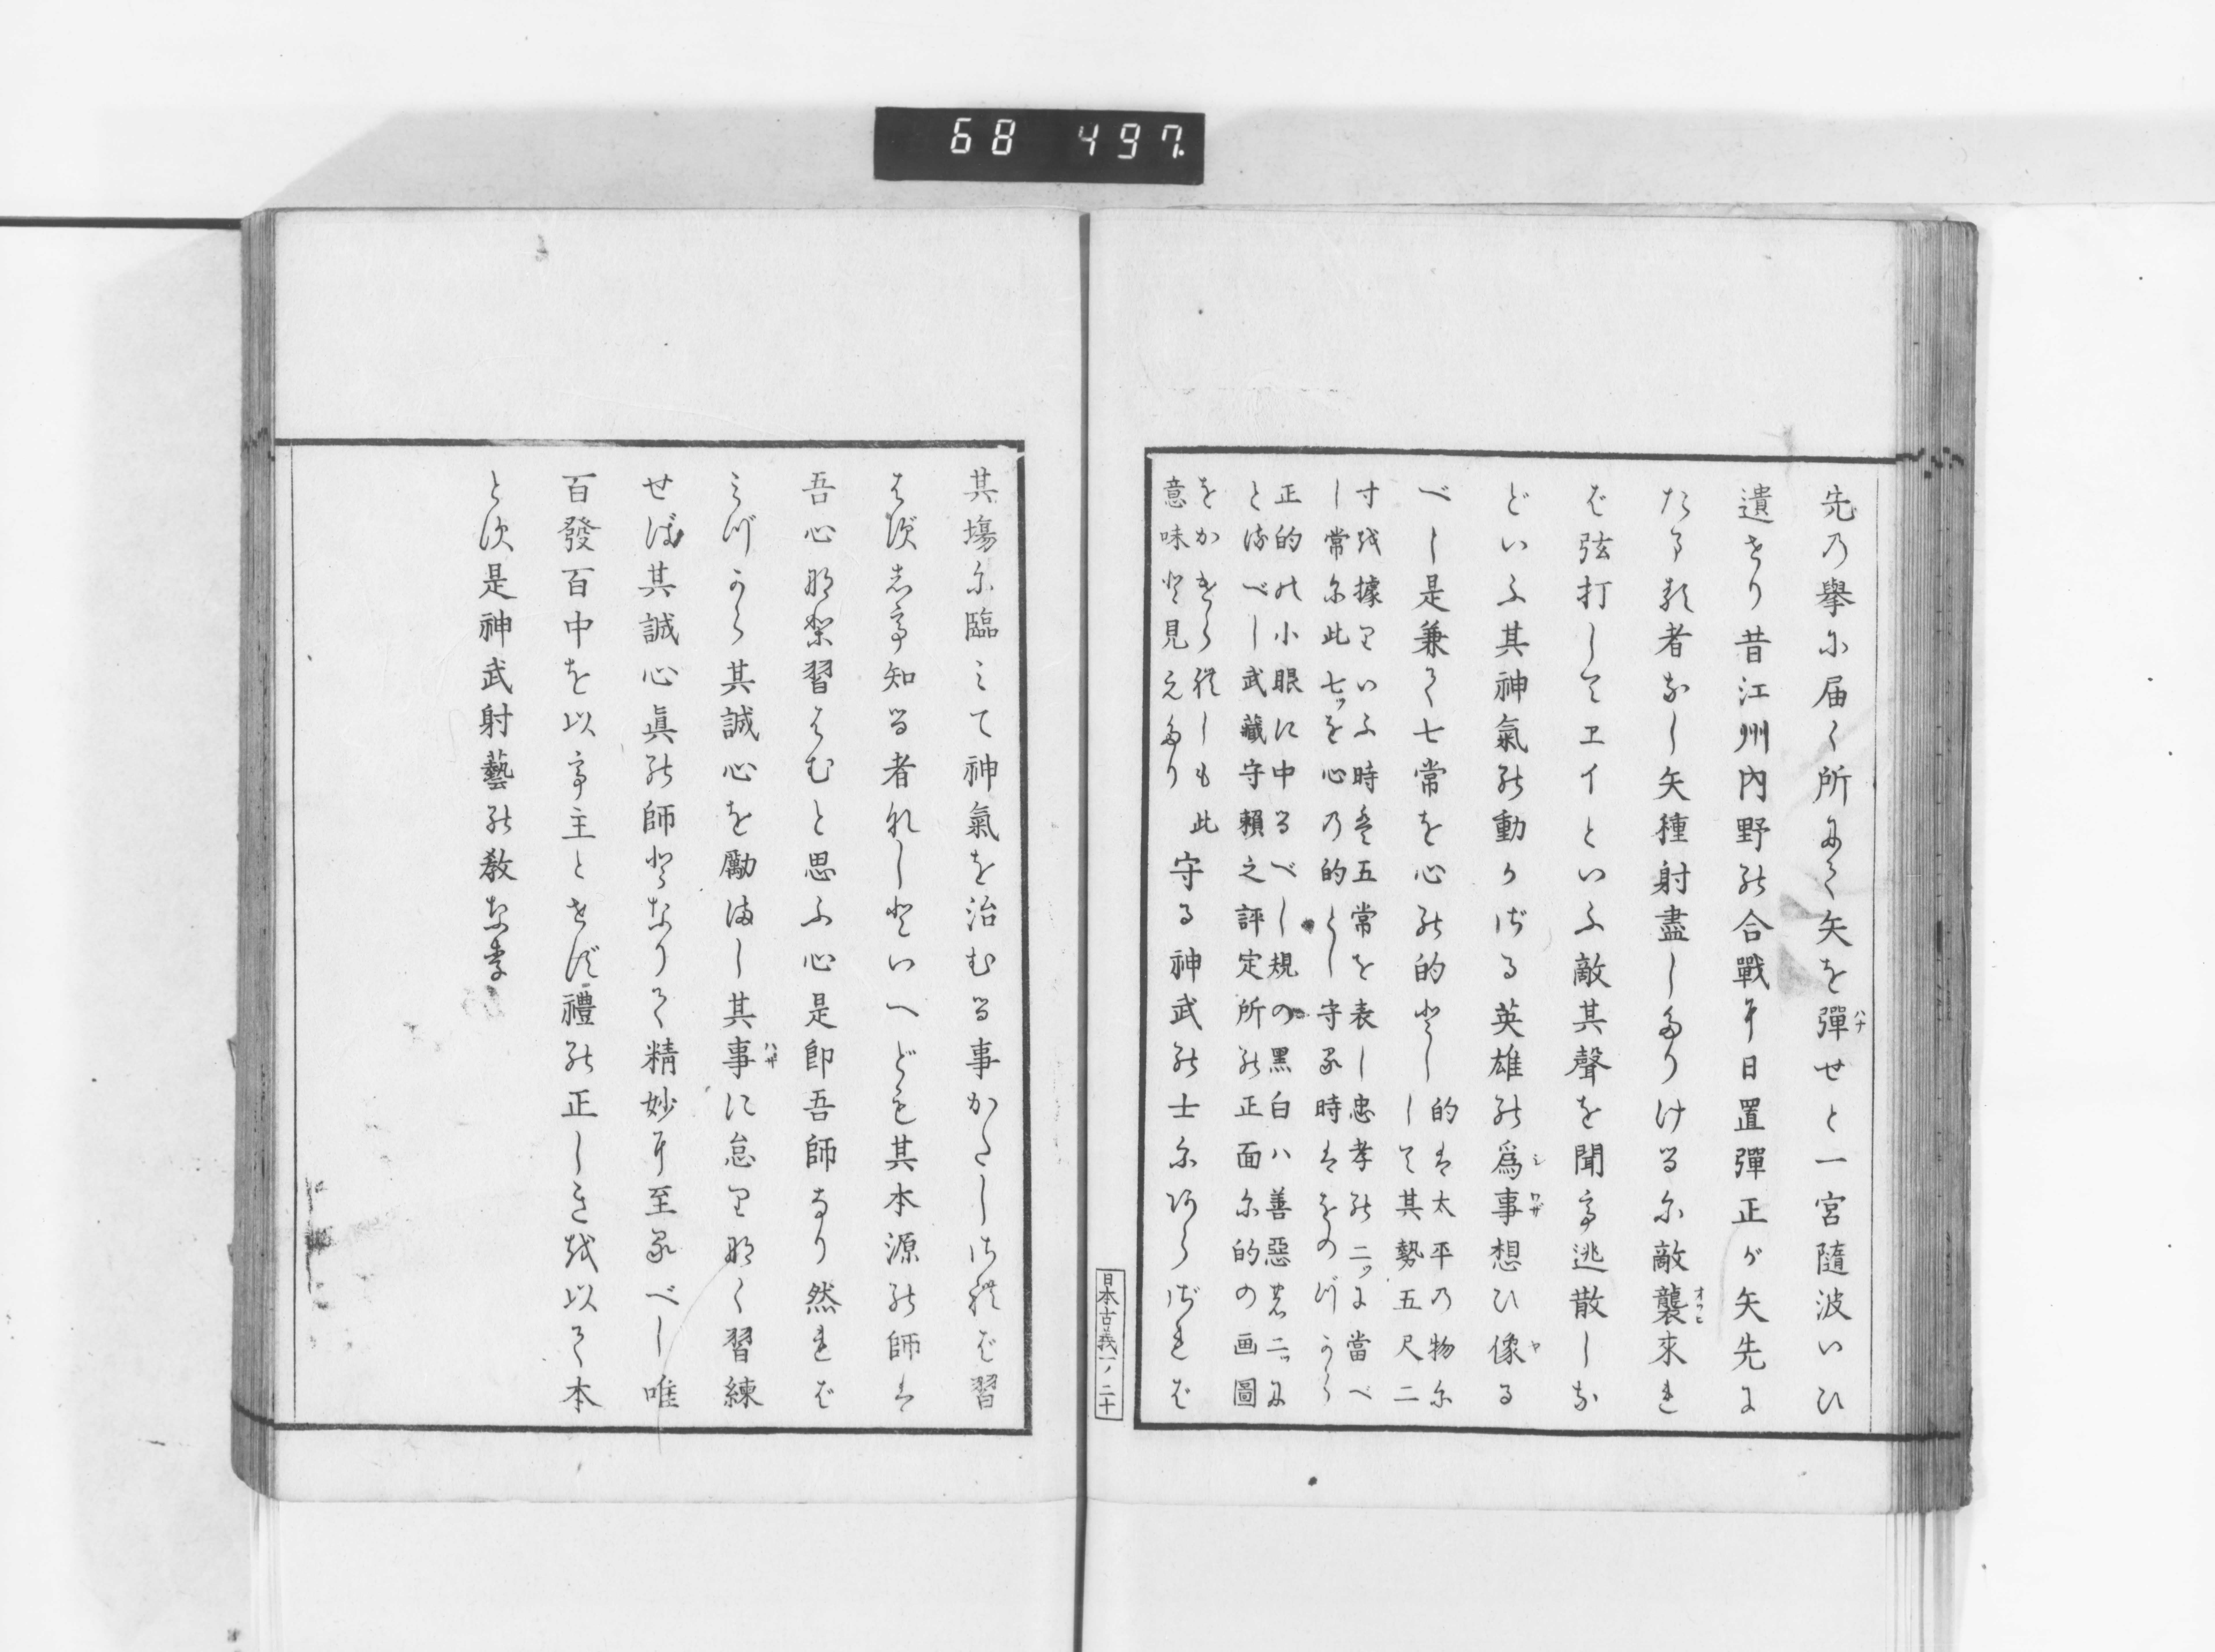 68 497
先の擧に届く所にて矢を彈せと一宮隨波いひ
遺せり昔江州内野の合戰に日置彈正が矢先に
たつ敵者なし矢種射盡したりけるに敵襲來れ
ば弦打してヱイといふ敵其聲を聞て逃散しな
どいふ其神氣の動かざる英雄の爲事想ひ像る
べし是兼て七常を心の的とし
的は太平の物に
して其勢五尺二
寸を據りいふ時は五常を表し忠孝の二ッに當べ
し常に此七ッを心の的とし守る時はをのづから
正的の小眼に中るべし規の黒白ハ善惡の二ッに
とるべし武藏守頼之評定所の正面に的の画圖
をかきられしも此
意味と見えたり
守る神武の士にあらざれば
日本古義一ノ二十
其塲に臨みて神氣を治むる事かたしされば習
はずして知る者なしといへども其本源の師は
吾心なり習はむと思ふ心是即吾師なり然れば
みづから其誠心を勵まし其事に怠りなく習練
せば其誠心眞の師となりて精妙に至るべし唯
百發百中を以て主とせず禮の正しきを以て本
とす是神武射藝の教なり